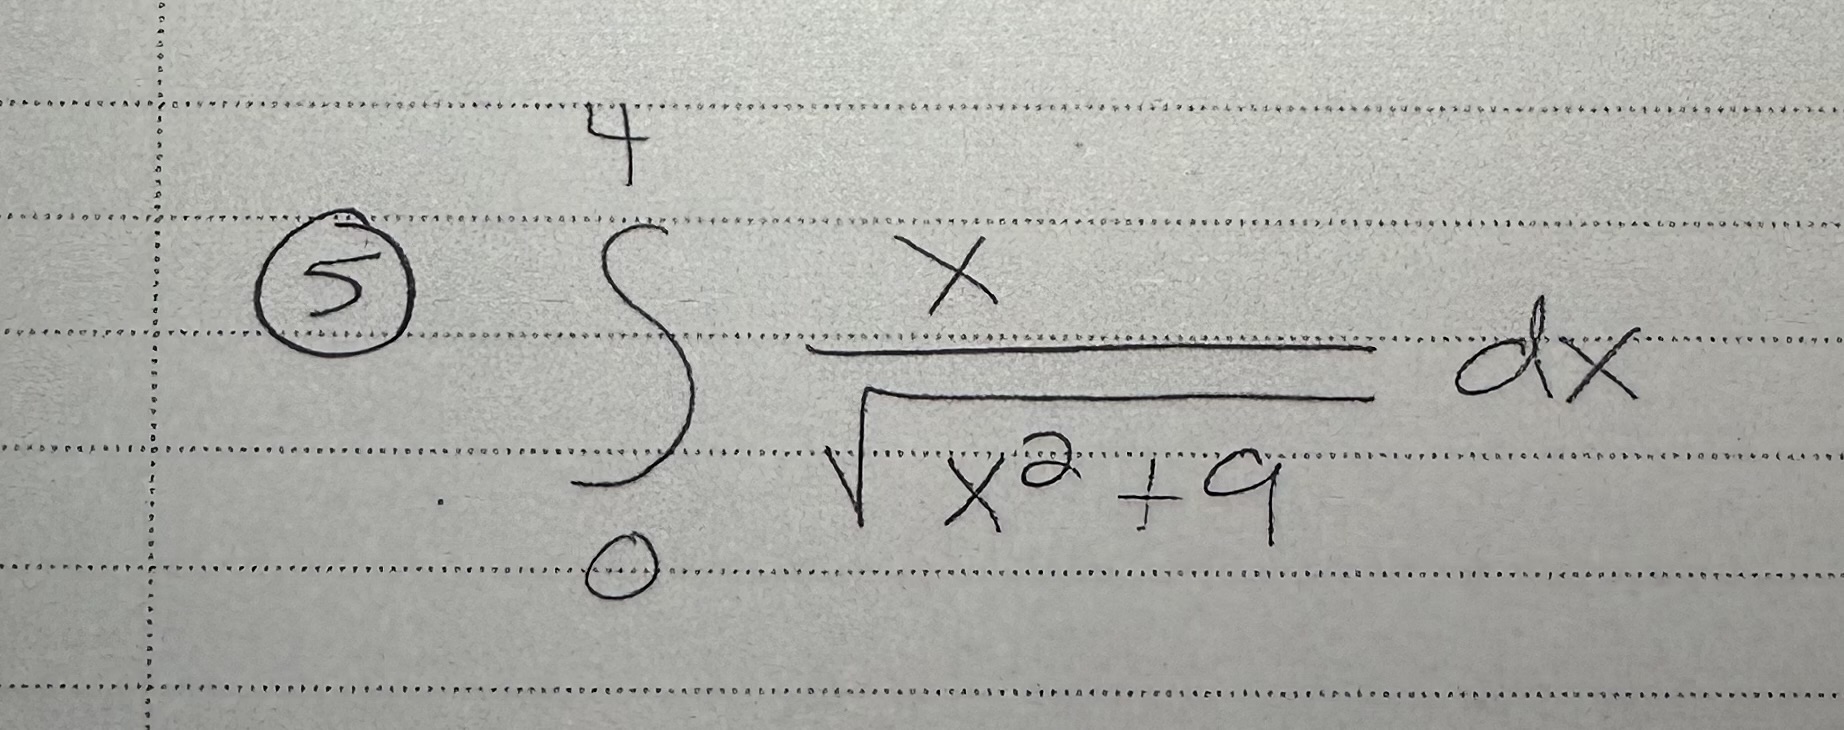 ⑤ ∫₀⁴ x/√(x²+9) dx